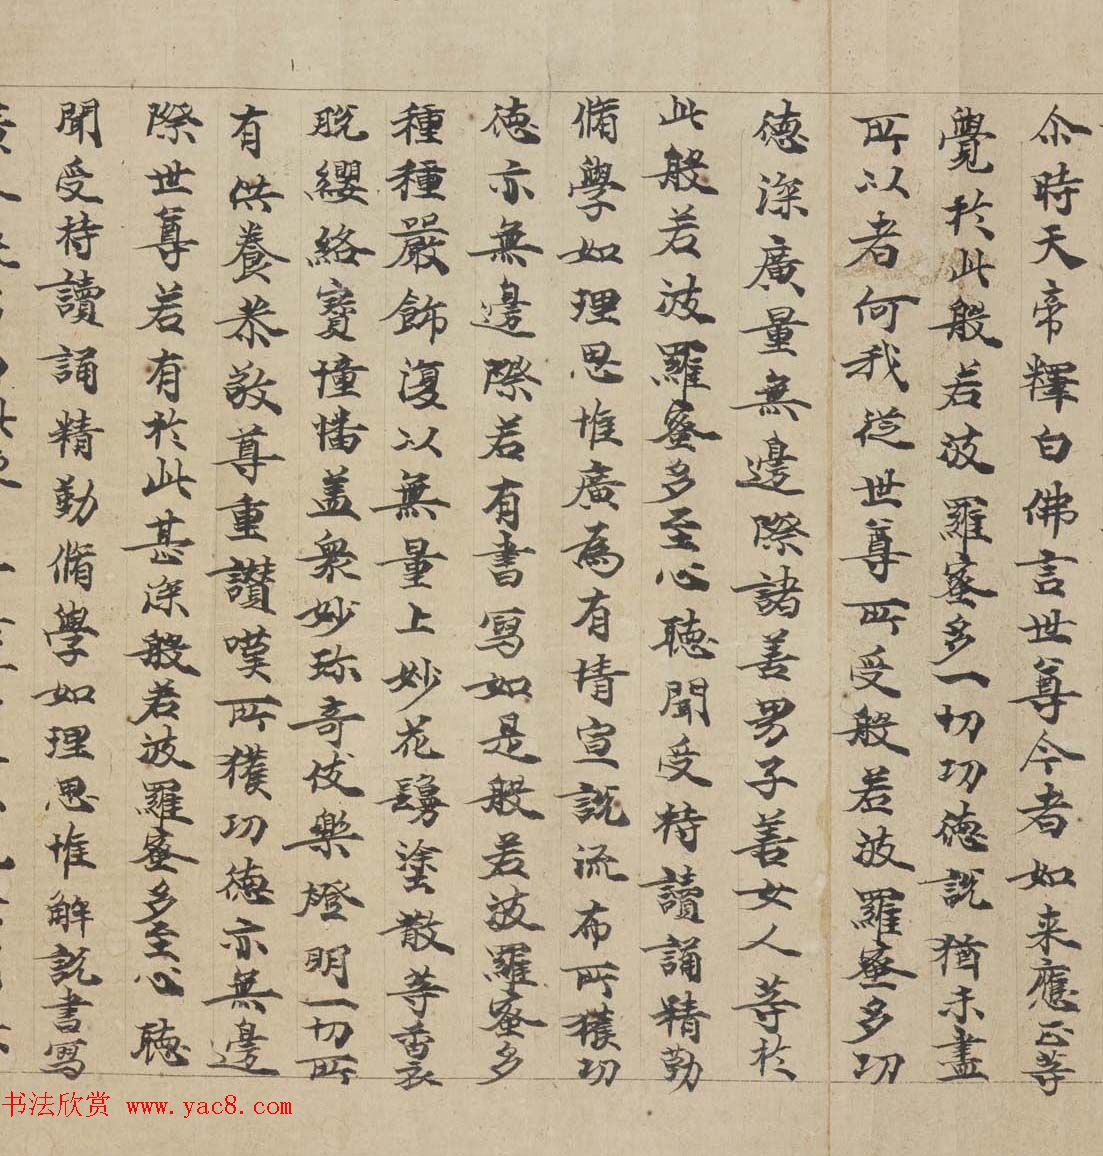 尒時天帝釋白佛言世尊今者如来應正等
覺於此般若波羅蜜多一切功德説猶未盡
所以者何我従世尊所受般若波羅蜜多功
徳深廣量無邊際諸善男子善女人等於
此般若波羅蜜多至心聴聞受持讀誦精勤
脩學如理思惟廣為有情宣説流布所獲功
徳亦無邊際若有書寫如是般若波羅蜜多
種種嚴飾復以無量上妙花鬘塗散等香衣
服纓絡寶幢幡盖衆妙珎奇伎樂橙明一切所
有供養恭敬尊重讃嘆所獲功徳亦無邊
際世尊若有於此甚深般若波羅蜜多至心聴
聞受持讀誦精勤脩學如理思惟解説書寫
书法欣赏 www.yac8.com